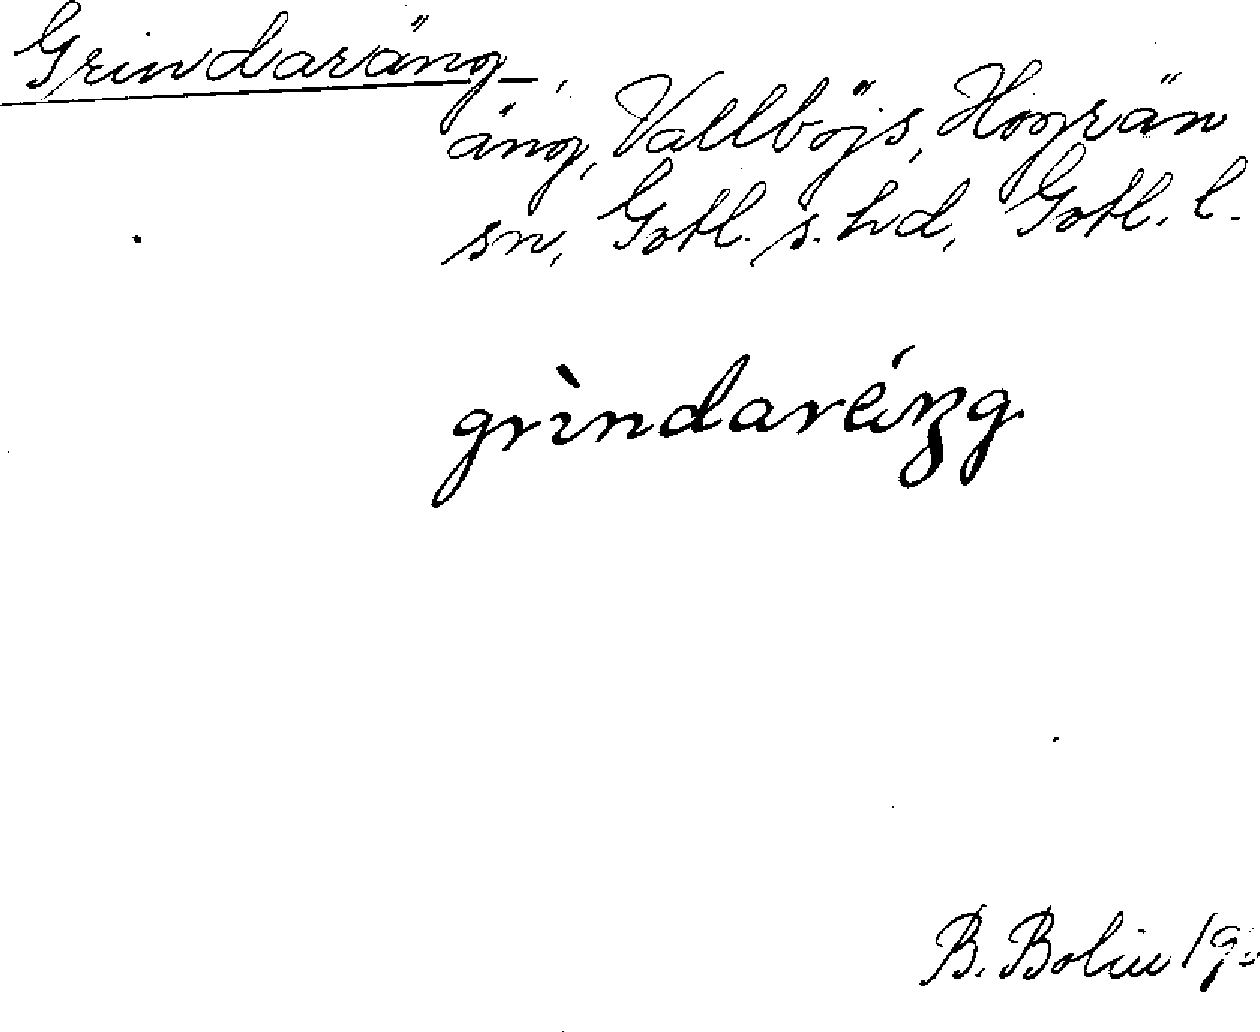 Grindaräng,
äng, Vallböjs, Hogrän
sn, Gotl. s. hd, Gotl. l.
grìndaréŋg.
B. Bolin